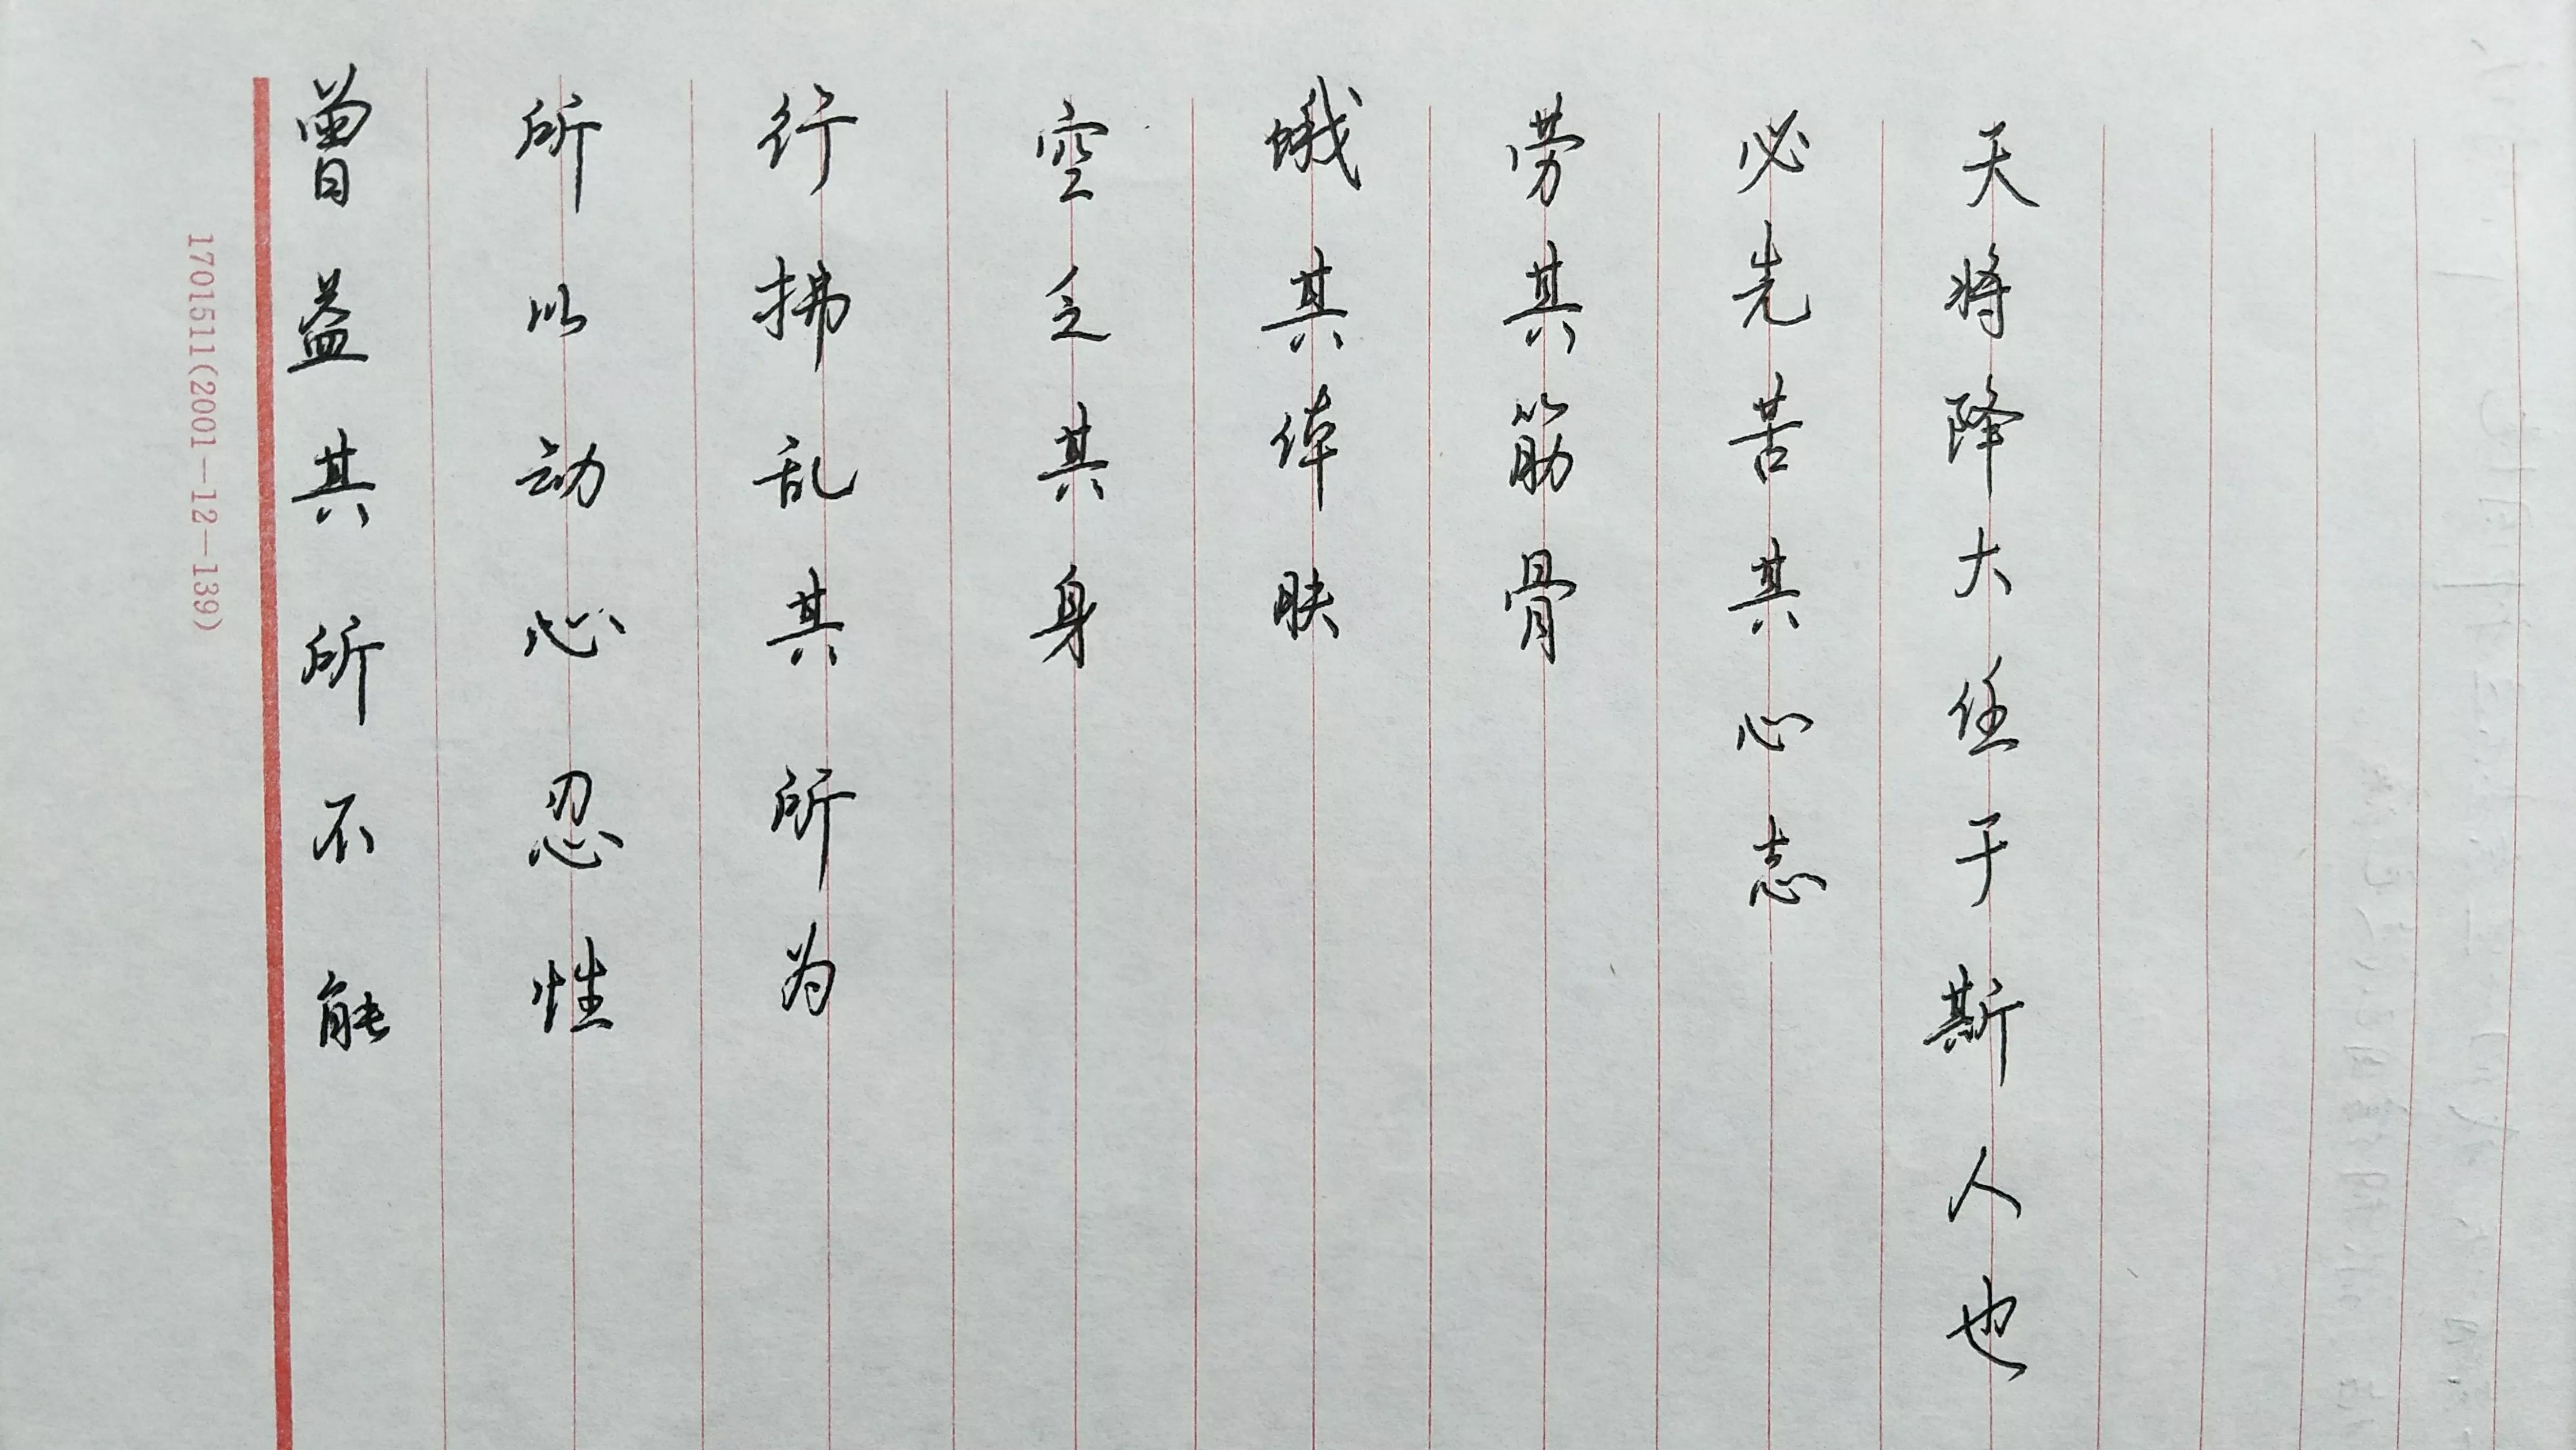 天将降大任于斯人也
必先苦其心志
劳其筋骨
蛾其体肤
空乏其身
行拂乱其所为
所以动心忍性
曾益其所不能
1701511(2001—12—139)